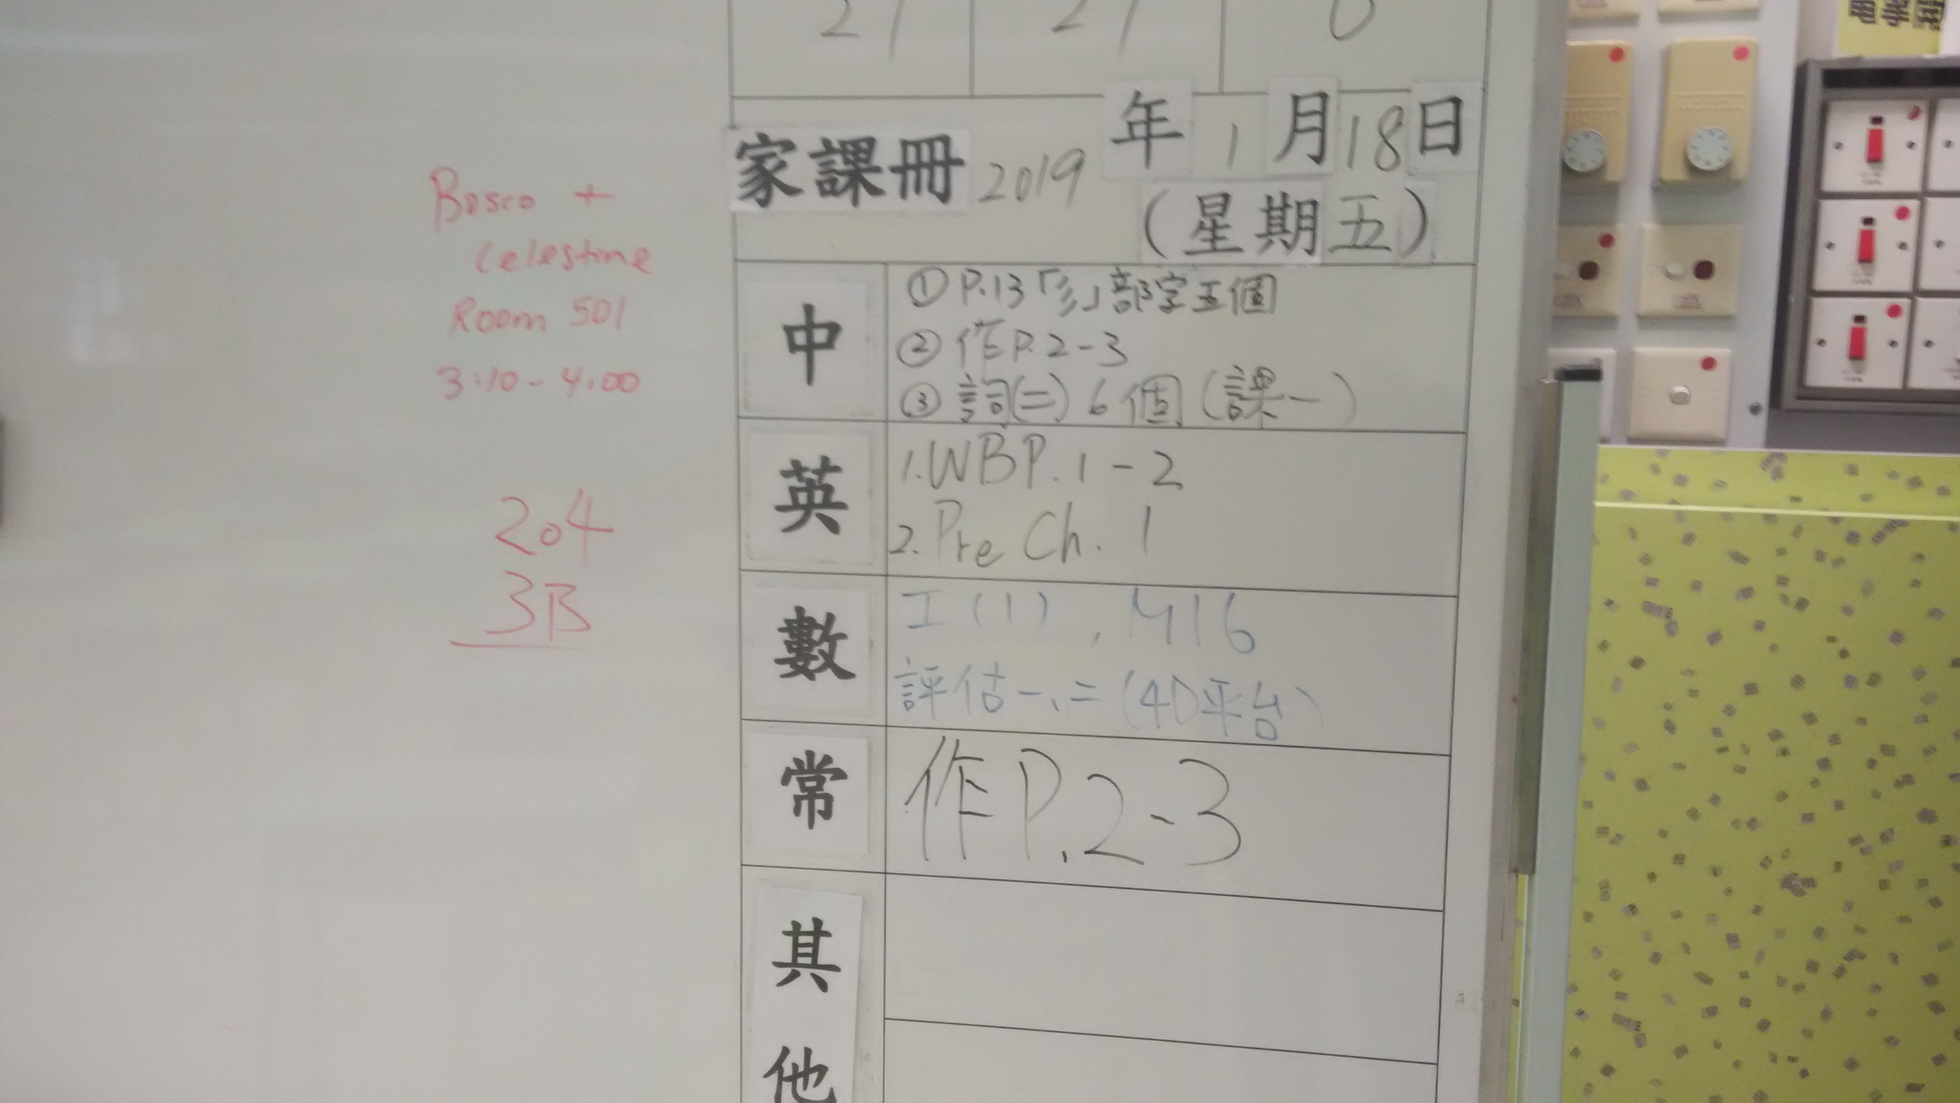 Bosco +
Celestine
Room 501
3:10 - 4:00
204
3B
家課冊 2019 年 1 月 18 日
(星期五)
中
① P.13「彡」部字五個
② 作P.2-3
③ 詞(二) 6個 (課一)
英
1. WB P. 1 - 2
2. Pre Ch. 1
數
工(1), M16
評估一、二 (4D平台)
常
作P. 2-3
其
他